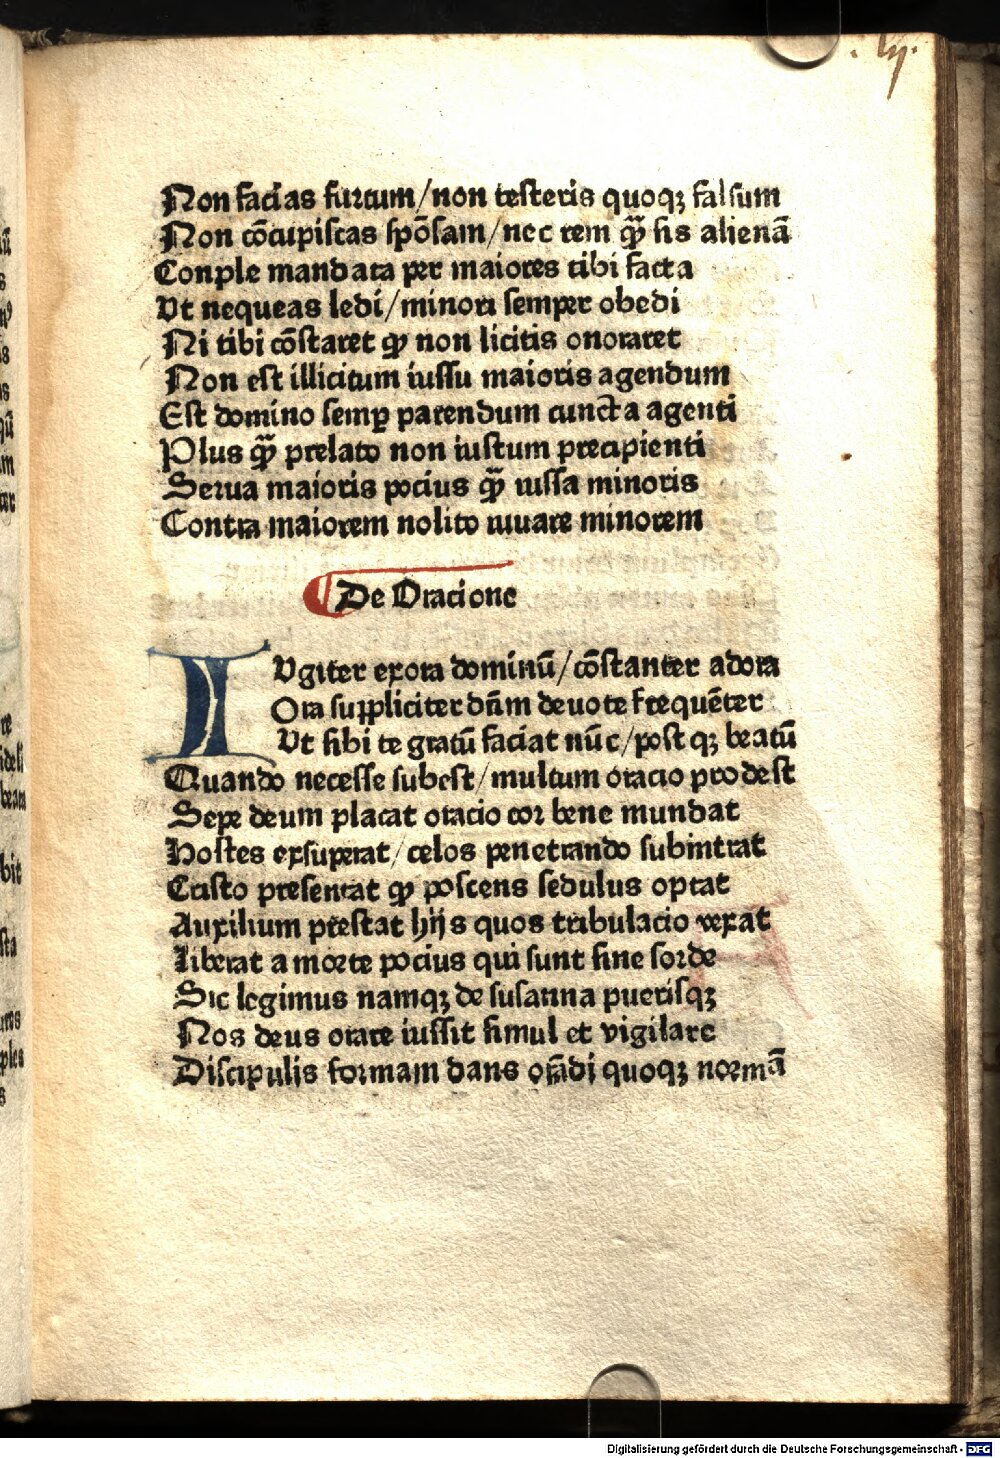 Non facias furtum/non testeris quoqꝫ falsum
Non cōcupiscas spōsam/nec rem qȝ̄ sis alienā
Conple mandata per maiores tibi facta
Vt nequeas ledi/minori semper obedi
Ni tibi cōstaret ꝙ non licitis onoraret
Non est illicitum iussu maioris agendum
Est domino semꝑ parendum cuncta agenti
Plus qȝ̄ prelato non iustum precipienti
Serua maioris pocius qȝ̄ iussa minoris
Contra maiorem nolito iuuare minorem
De Oracione
IVgiter exora dominū/cōstanter adora
Ora suppliciter dn̄m deuote frequēter
Vt sibi te gratū faciat nūc/post qꝫ beatū
Quando necesse subest/multum oracio prodest
Sepe deum placat oracio cor bene mundat
Hostes exsuperat/celos penetrando subintrat
Cristo presentat ꝙ poscens sedulus optat
Auxilium prestat hijs quos tribulacio vexat
Liberat a morte pocius qui sunt sine sorde
Sic legimus namqꝫ de susanna puerisqꝫ
Nos deus orare iussit simul et vigilare
Discipulis formam dans orādi quoqꝫ normā
Digitalisierung gefördert durch die Deutsche Forschungsgemeinschaft - DFG